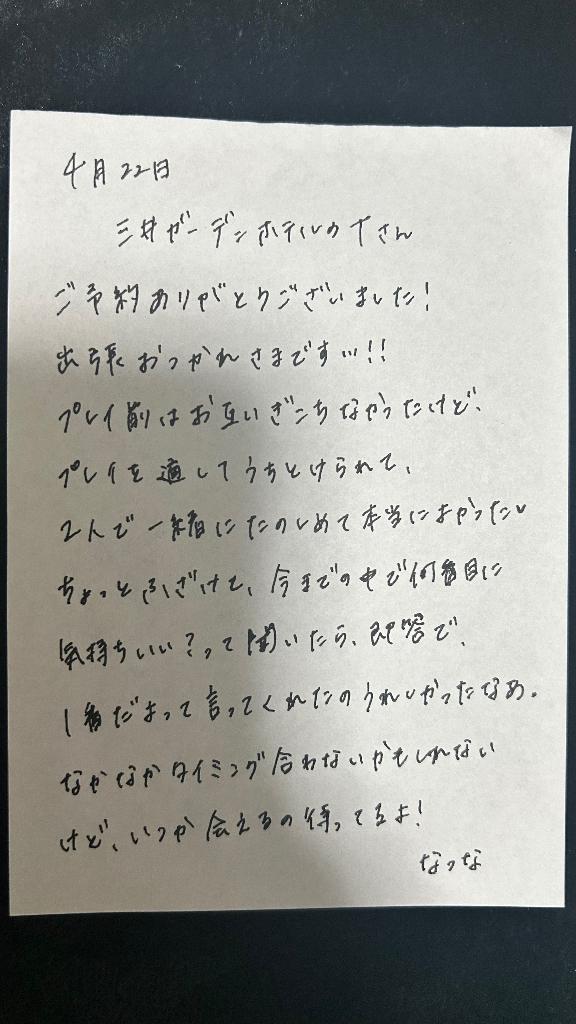 4月22日
三井ガーデンホテルのTさん
ご予約ありがとうございました!
出張おつかれさまです…!!
プレイ前はお互いぎこちなかったけど、
プレイを通してうちとけられて、
2人で一緒にたのしめて本当によかった
ちょっとふざけて、今までの中で何番目に
気持ちいい?って聞いたら、即答で、
1番だよって言ってくれたのうれしかったなあ。
なかなかタイミング合わないかもしれない
けど、いつか会えるの待ってるよ!
なつな